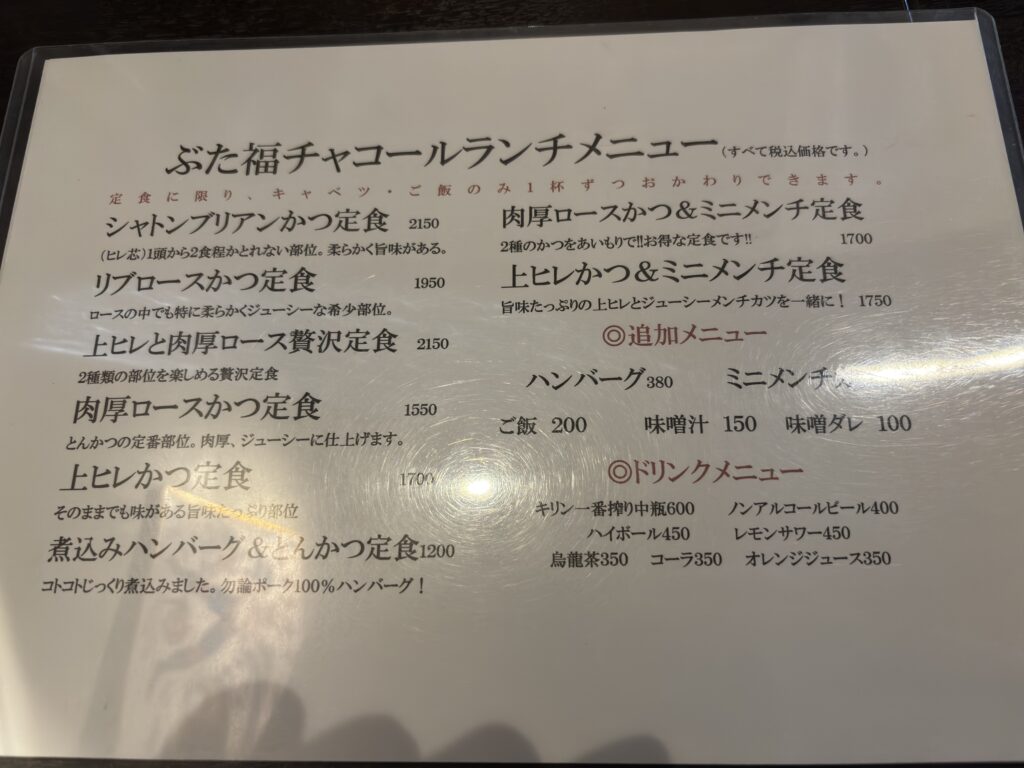 ぶた福チャコールランチメニュー(すべて税込価格です。)
定食に限り、キャベツ・ご飯のみ1杯ずつおかわりできます。
シャトンブリアンかつ定食 2150
(ヒレ芯)1頭から2食程かとれない部位。柔らかく旨味がある。
リブロースかつ定食 1950
ロースの中でも特に柔らかくジューシーな希少部位。
上ヒレと肉厚ロース贅沢定食 2150
2種類の部位を楽しめる贅沢定食
肉厚ロースかつ定食 1550
とんかつの定番部位。肉厚、ジューシーに仕上げます。
上ヒレかつ定食 1700
そのままでも味がある旨味たっぷり部位
煮込みハンバーグ&とんかつ定食1200
コトコトじっくり煮込みました。勿論ポーク100%ハンバーグ!
肉厚ロースかつ&ミニメンチ定食
2種のかつをあいもりで!!お得な定食です!! 1700
上ヒレかつ&ミニメンチ定食
旨味たっぷりの上ヒレとジューシーメンチカツを一緒に! 1750
◎追加メニュー
ハンバーグ380 ミニメンチ
ご飯 200 味噌汁 150 味噌ダレ 100
◎ドリンクメニュー
キリン一番搾り中瓶600 ノンアルコールビール400
ハイボール450 レモンサワー450
烏龍茶350 コーラ350 オレンジジュース350